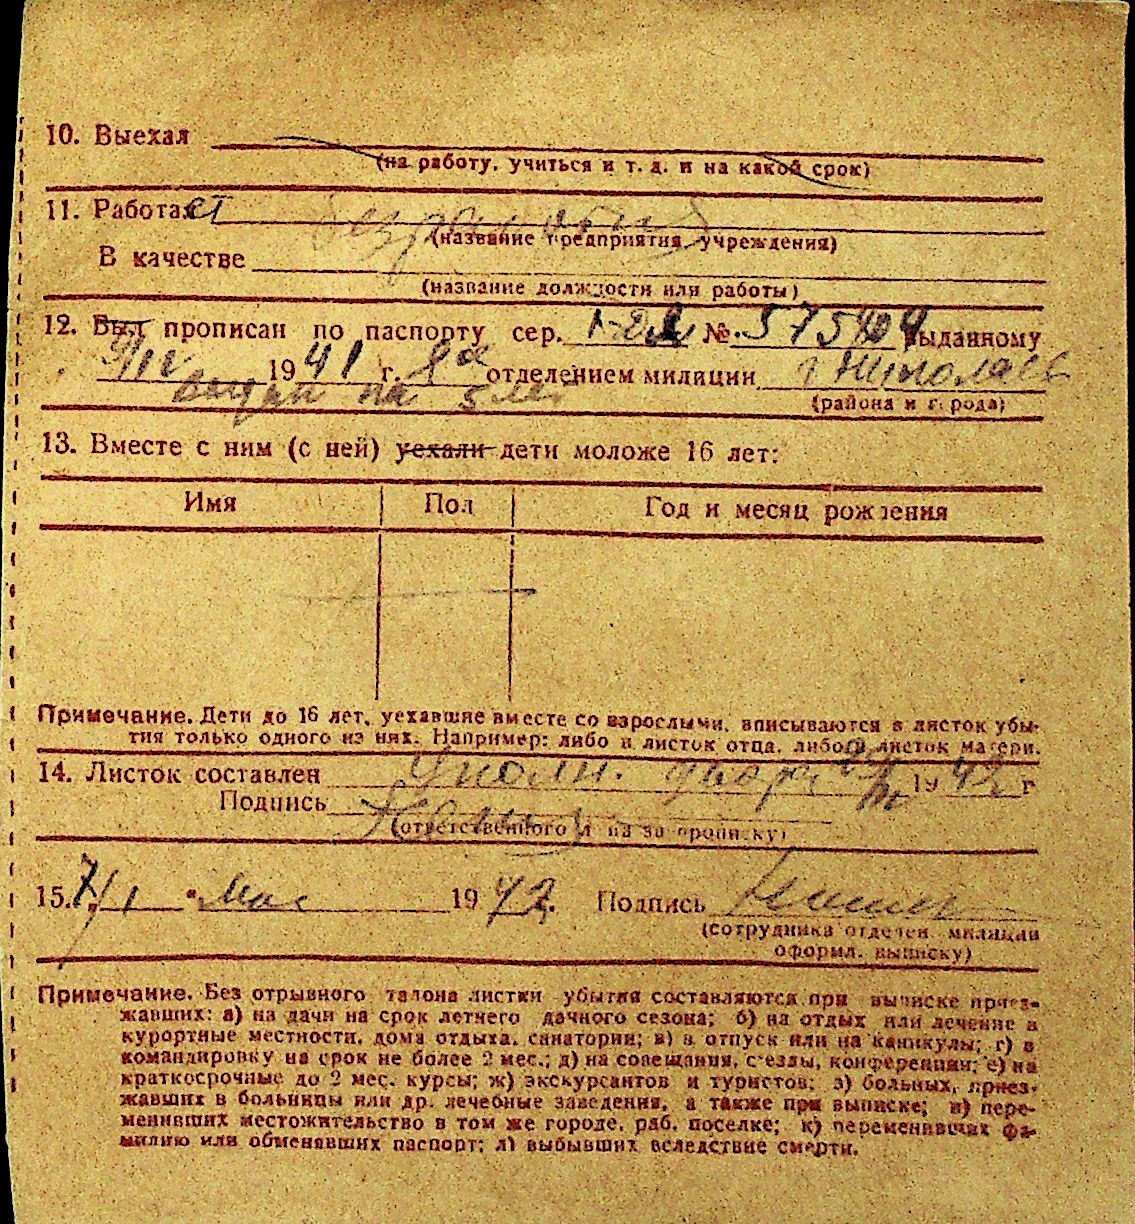 10. Выехал
(на работу, учиться и т. д. и на какой срок)
11. Работает
(название предприятия, учреждения)
В качестве
(название должности или работы)
12. Был прописан по паспорту сер. № выданному
1941 г. отделением милиции г. Николаев
выдан на 5 лет
(района и города)
13. Вместе с ним (с ней) уехали дети моложе 16 лет:
Имя Пол Год и месяц рождения
Примечание. Дети до 16 лет, уехавшие вместе со взрослыми, вписываются в листок убы-
тия только одного из них. Например: либо в листок отца, либо в листок матери.
14. Листок составлен 1942 г
Подпись
(ответственного л на за прописку)
15. 7/I 1942. Подпись
(сотрудника отделен. милиции
оформл. выписку)
Примечание. Без отрывного талона листки убытия составляются при выписке приез-
жавших: а) на дачи на срок летнего дачного сезона; б) на отдых или лечение в
курортные местности, дома отдыха, санатории; в) в отпуск или на каникулы; г) в
командировку на срок не более 2 мес.; д) на совещания, с'езды, конференции; е) на
краткосрочные до 2 мес. курсы; ж) экскурсантов и туристов; з) больных, приез-
жавших в больницы или др. лечебные заведения, а также при выписке; и) пере-
менивших местожительство в том же городе, раб. поселке; к) переменивших фа-
милию или обменявших паспорт; л) выбывших вследствие смерти.